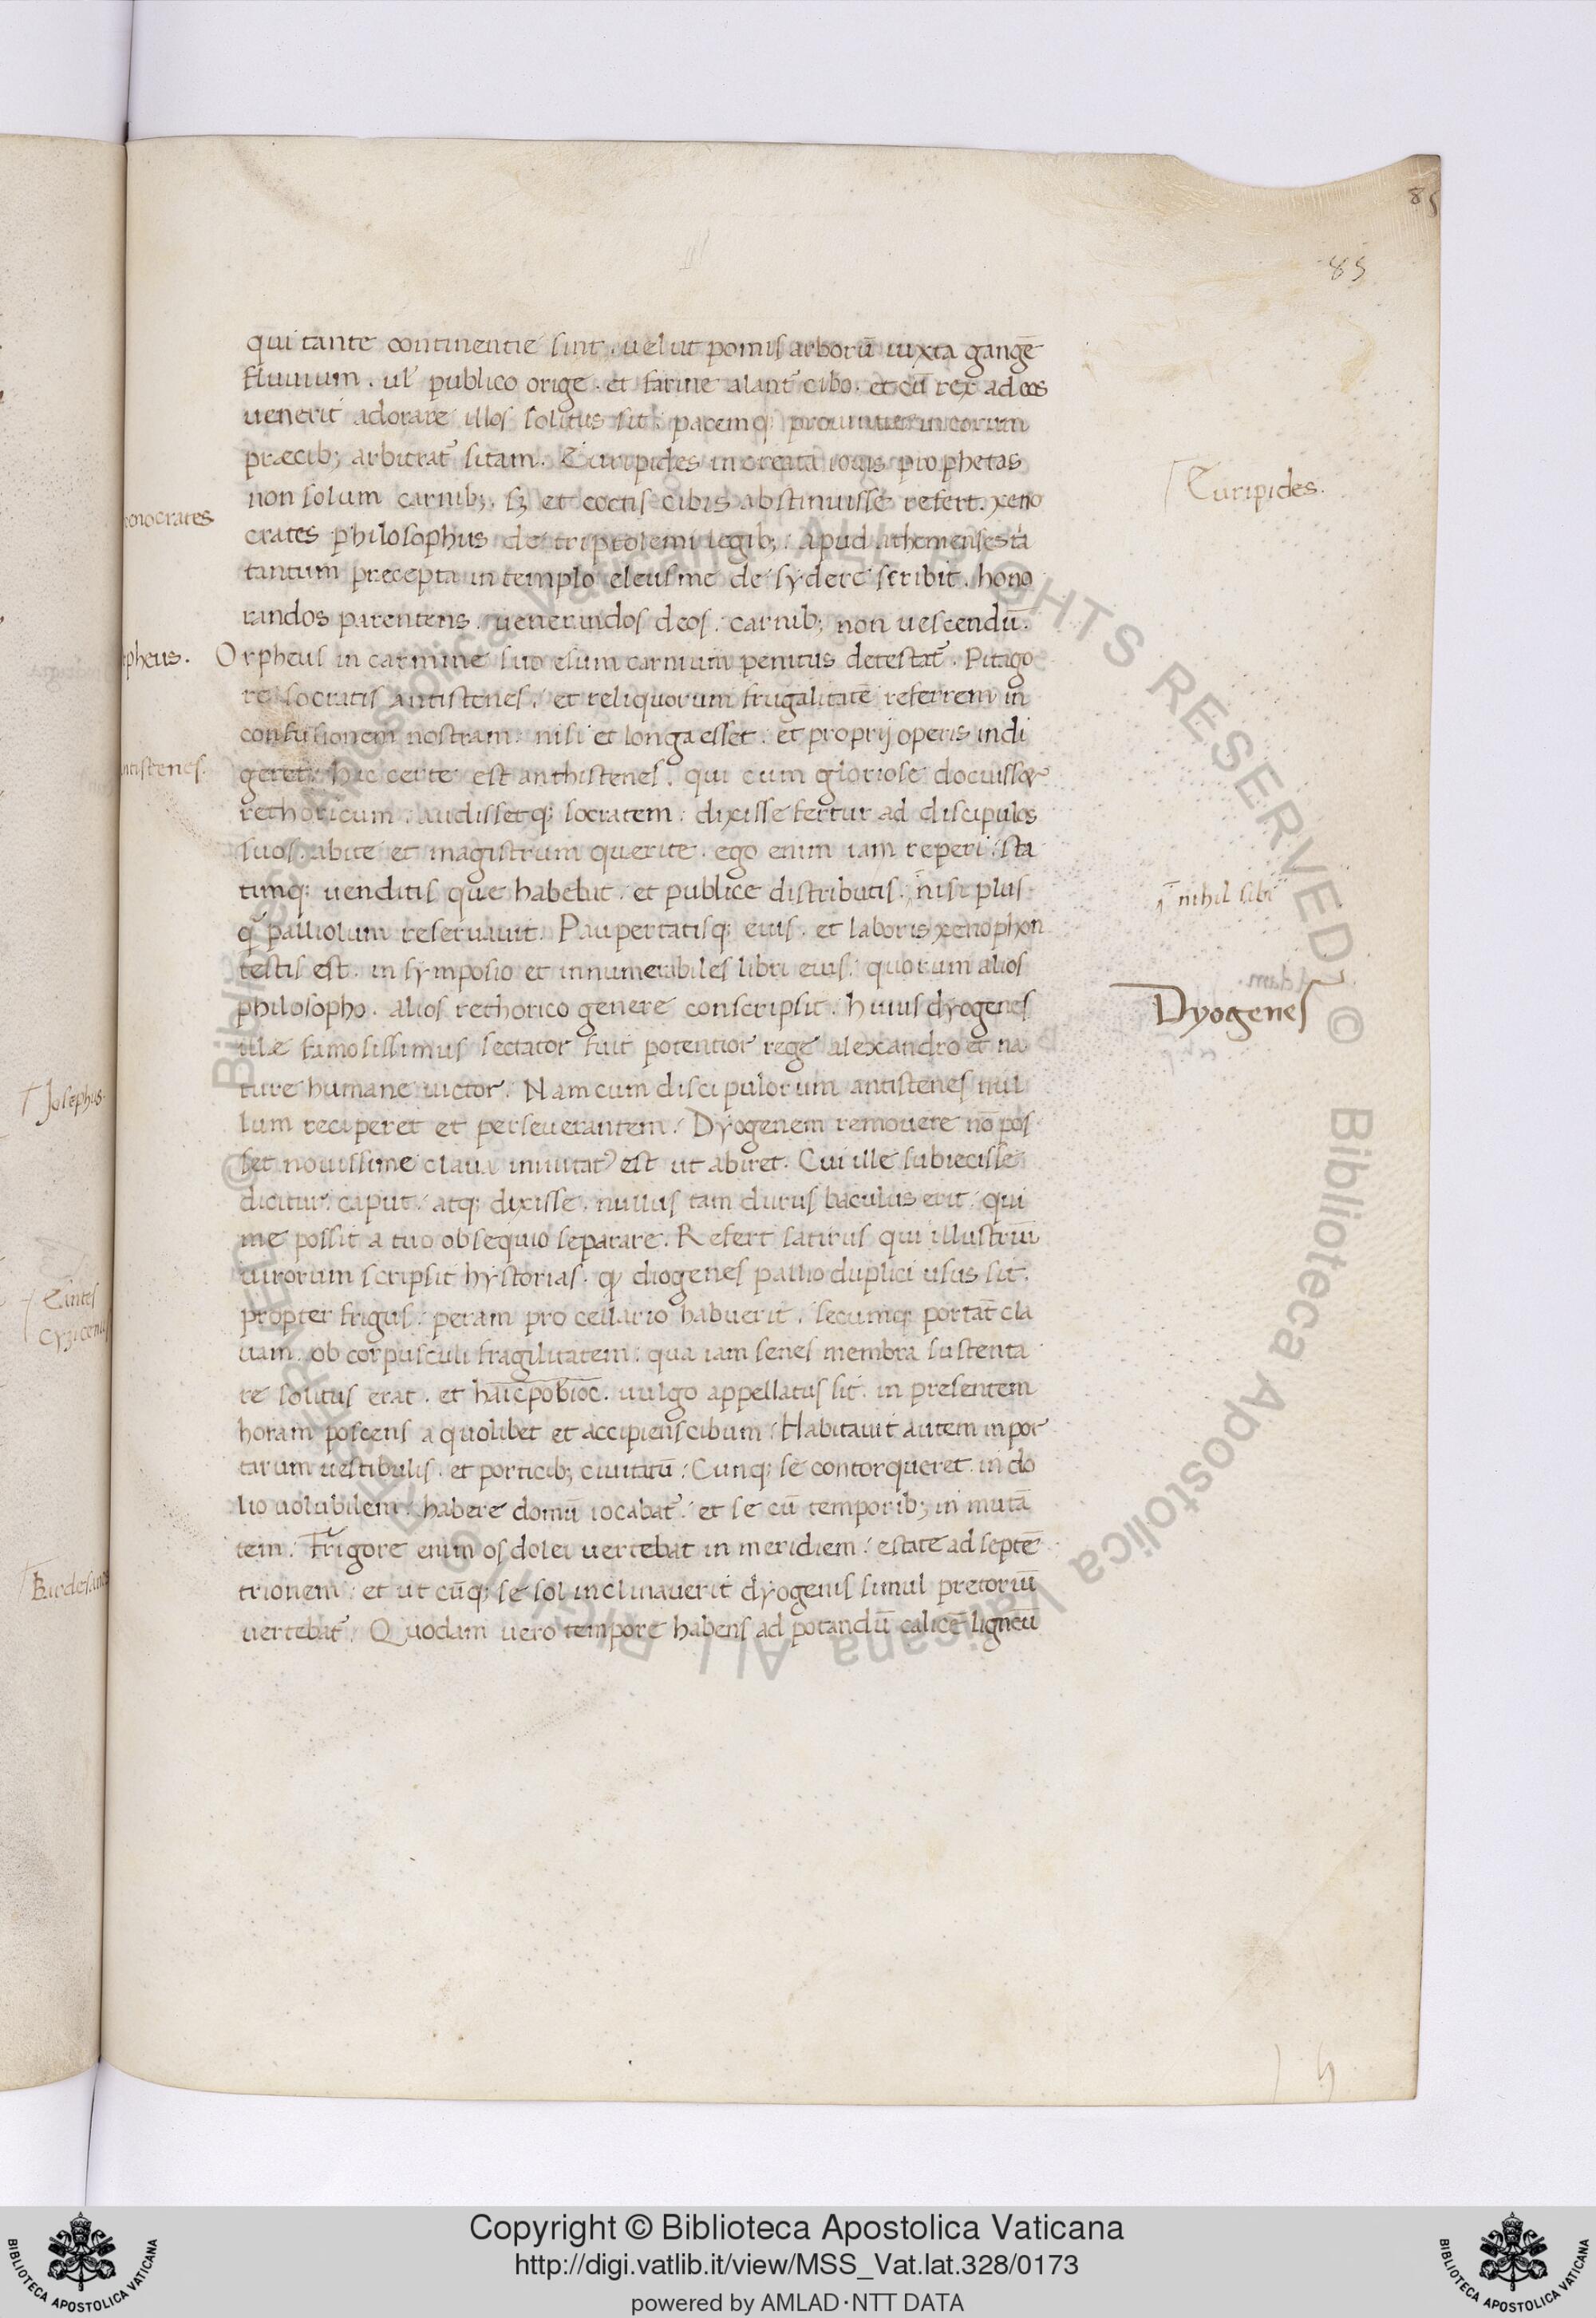 85
85
qui tante continentie sint. uel ut pomis arborū iuxta gangē
fluuium. ul' publico orige. et farine alant̃ cibo. et cū rex ad eos
uenerit adorare illos solitus sit. pacemq; prouintie in eorum
præcib; arbitrat̃ sitam. Euripides in creata iouis prophetas
non solum carnib;. sȝ et coctis cibis abstinuisse refert. xeno
crates philosophus de triptolemi legib;. apud athenienses tā
tantum precepta in templo eleusine de sydere scribit. hono
randos parentens. uenerandos deos. carnib; non uescendū.
Orpheus in carmine suo esum carnium penitus detestat̃. Pitago
re socratis antistenes. et reliquorum frugalitatē referrem in
confusionem nostram. nisi et longa esset. et proprij operis indi
geret. hic certe est anthistenes. qui cum gloriose docuisset
rethoricum. audissetq; socratem. dixisse fertur ad discipulos
suos. abite et magistrum querite. ego enim iam reperi. sta
timq; uenditis que habebat. et publice distributis. nisi plus
q̄ palliolum reseruauit. Paupertatisq; eius. et laboris xenophon
testis est. in symposio et innumerabiles libri eius. quorum alios
philosopho. alios rethorico genere conscripsit. huius dyogenes
ille famosissimus sectator fuit potentior rege alexandro et na
ture humane uictor. Nam cum discipulorum antistenes nul
lum reciperet et perseuerantem. Dyogenem remouere nō pos
set nouissime claua minitat' est ut abiret. Cui ille subiecisse
dicitur caput. atq; dixisse. nullus tam durus baculus erit. qui
me possit a tuo obsequio separare. Refert satirus qui illustriū
uirorum scripsit hystorias. q diogenes pallio duplici usus sit.
propter frigus. peram pro cellario habuerit. secumq; portat̃ cla
uam. ob corpusculi fragilitatem. qua iam senes membra sustenta
re solitus erat. et haicpobioc. uulgo appellatus sit. in presentem
horam poscens a quolibet et accipiens cibum. Habitauit autem in por
tarum uestibulis. et porticib; ciuitatū. Cunq; se contorqueret in do
lio uolubilem habere domū iocabat̃. et se cū temporib; in mutā
tem. Frigore enim os dolei uertebat in meridiem. estate ad septē
trionem. et ut cūq; se sol inclinauerit dyogenis simul pretoriū
uertebat̃. Quodam uero tempore habens ad potandū calicē ligneū
enocrates
pheus.
ntistenes.
Euripides.
nihil sibi
Dyogenes
Josephus.
Copyright © Biblioteca Apostolica Vaticana
http://digi.vatlib.it/view/MSS_Vat.lat.328/0173
powered by AMLAD·NTT DATA
BIBLIOTECA APOSTOLICA VATICANA
BIBLIOTECA APOSTOLICA VATICANA
© Biblioteca Apostolica Vaticana ALL RIGHTS RESERVED © Biblioteca Apostolica Vaticana ALL RIGHTS RESERVED